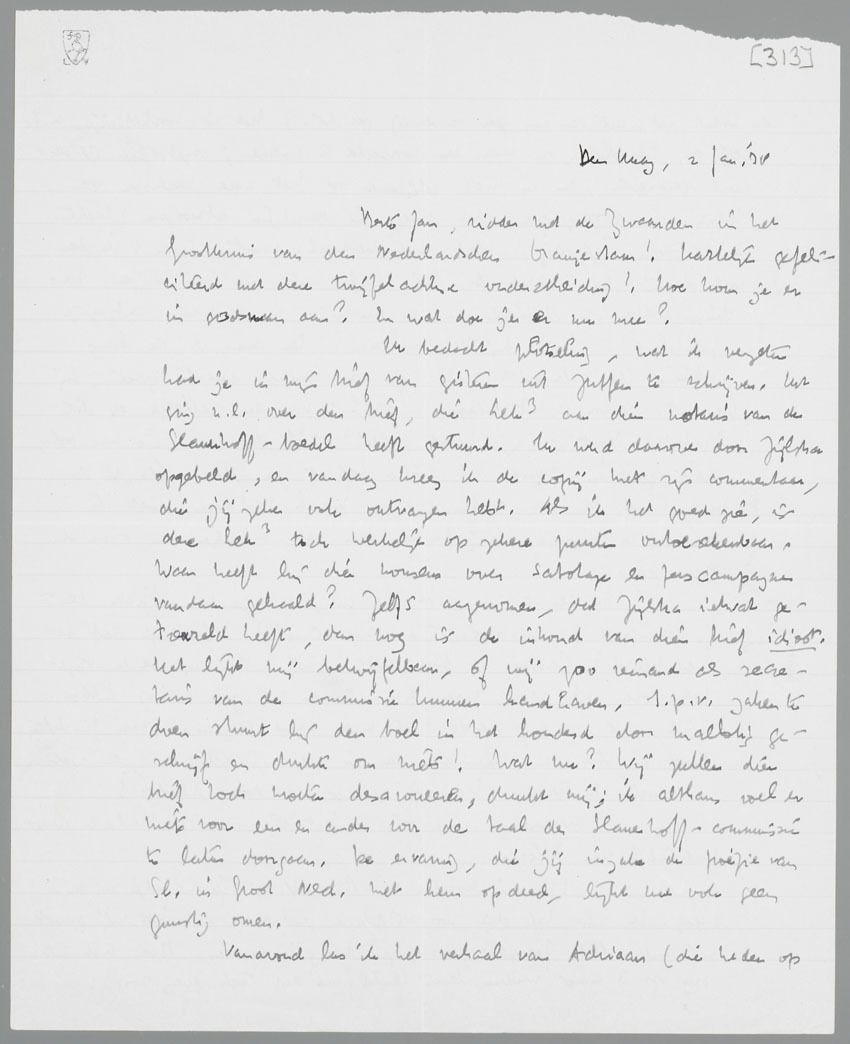 [313]
Den Haag, 2 Jan. '38
Beste Jan, ridder met de Zwaarden in het
Grootkruis van den Nederlandschen Oranjestam! Hartelijk gefeli-
citeerd met deze twijfelachtige onderscheiding! Hoe kom je er
in godsnaam aan? En wat doe je er nu mee?
Ik bedacht plotseling, wat ik vergeten
had je in mijn brief van gisteren uit Zutfen te schrijven. Het
ging n.l. over den brief, die aan dien notaris van de
Slauerhoff-boedel heeft gestuurd. Ik werd daarover door Zijlstra
opgebeld, en vandaag kreeg ik de copij met zijn commentaar,
die jij zeker ook ontvangen hebt. Als ik het goed zie, is
deze toch werkelijk op zekere punten ontoerekenbaar.
Waar heeft hij die nonsens over sabotage en perscampagne
vandaan gehaald? Zelfs aangenomen, dat Zijlstra ietwat ge-
treuzeld heeft, dan nog is de inhoud van dien brief idioot.
Het lijkt mij betwijfelbaar, of wij zoo iemand als secre-
taris van de commissie kunnen handhaven. I.p.v. zaken te
doen stuurt hij den boel in het honderd door mallotig ge-
schrijf en drukte om niets! Wat nu? Wij zullen dien
brief toch moeten desavoueeren, dunkt mij; ik althans voel er
niets voor een en ander voor de taal der Slauerhoff-commissie
te laten doorgaan. De ervaring, die jij inzake de poëzie van
Sl. in Groot Ned. met hem opdeed, lijkt me ook geen
gunstig omen.
Vanavond las ik het verhaal van Adriaan (die heden op